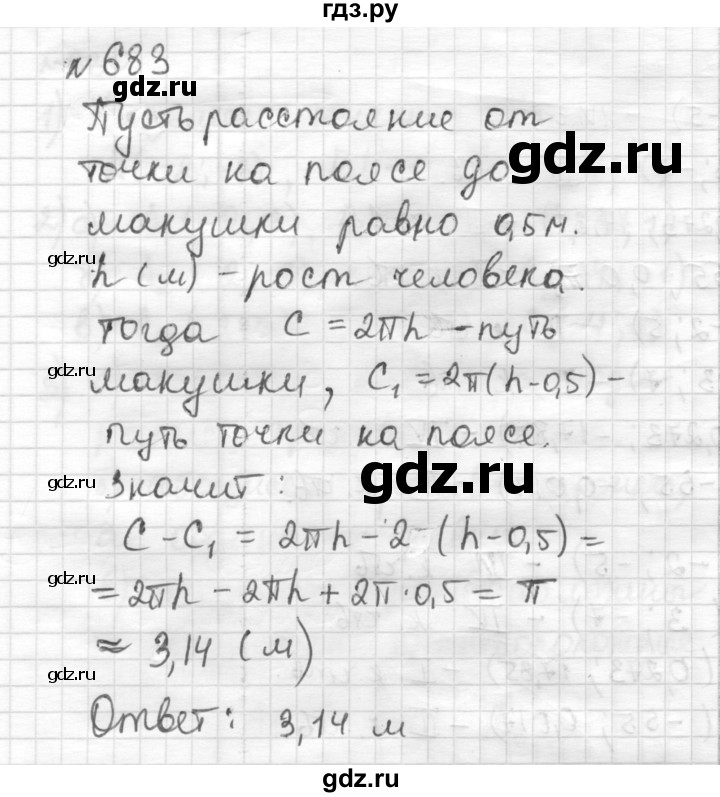 гдз.ру
№ 683
gdz.ru
Пусть расстояние от
точки на поясе до
gdz.ru
макушки равно 0,5 м.
gdz.ru
h (м) - рост человека.
тогда C = 2πh - путь
gdz.ru
макушки, C₁ = 2π(h-0,5) -
путь точки на поясе.
gdz.ru
gdz.ru
Значит:
C - C₁ = 2πh - 2 (h-0,5) =
gdz.ru
= 2πh - 2πh + 2π·0,5 = π
≈ 3,14 (м)
gdz.ru
Ответ: 3,14 м
gdz.ru